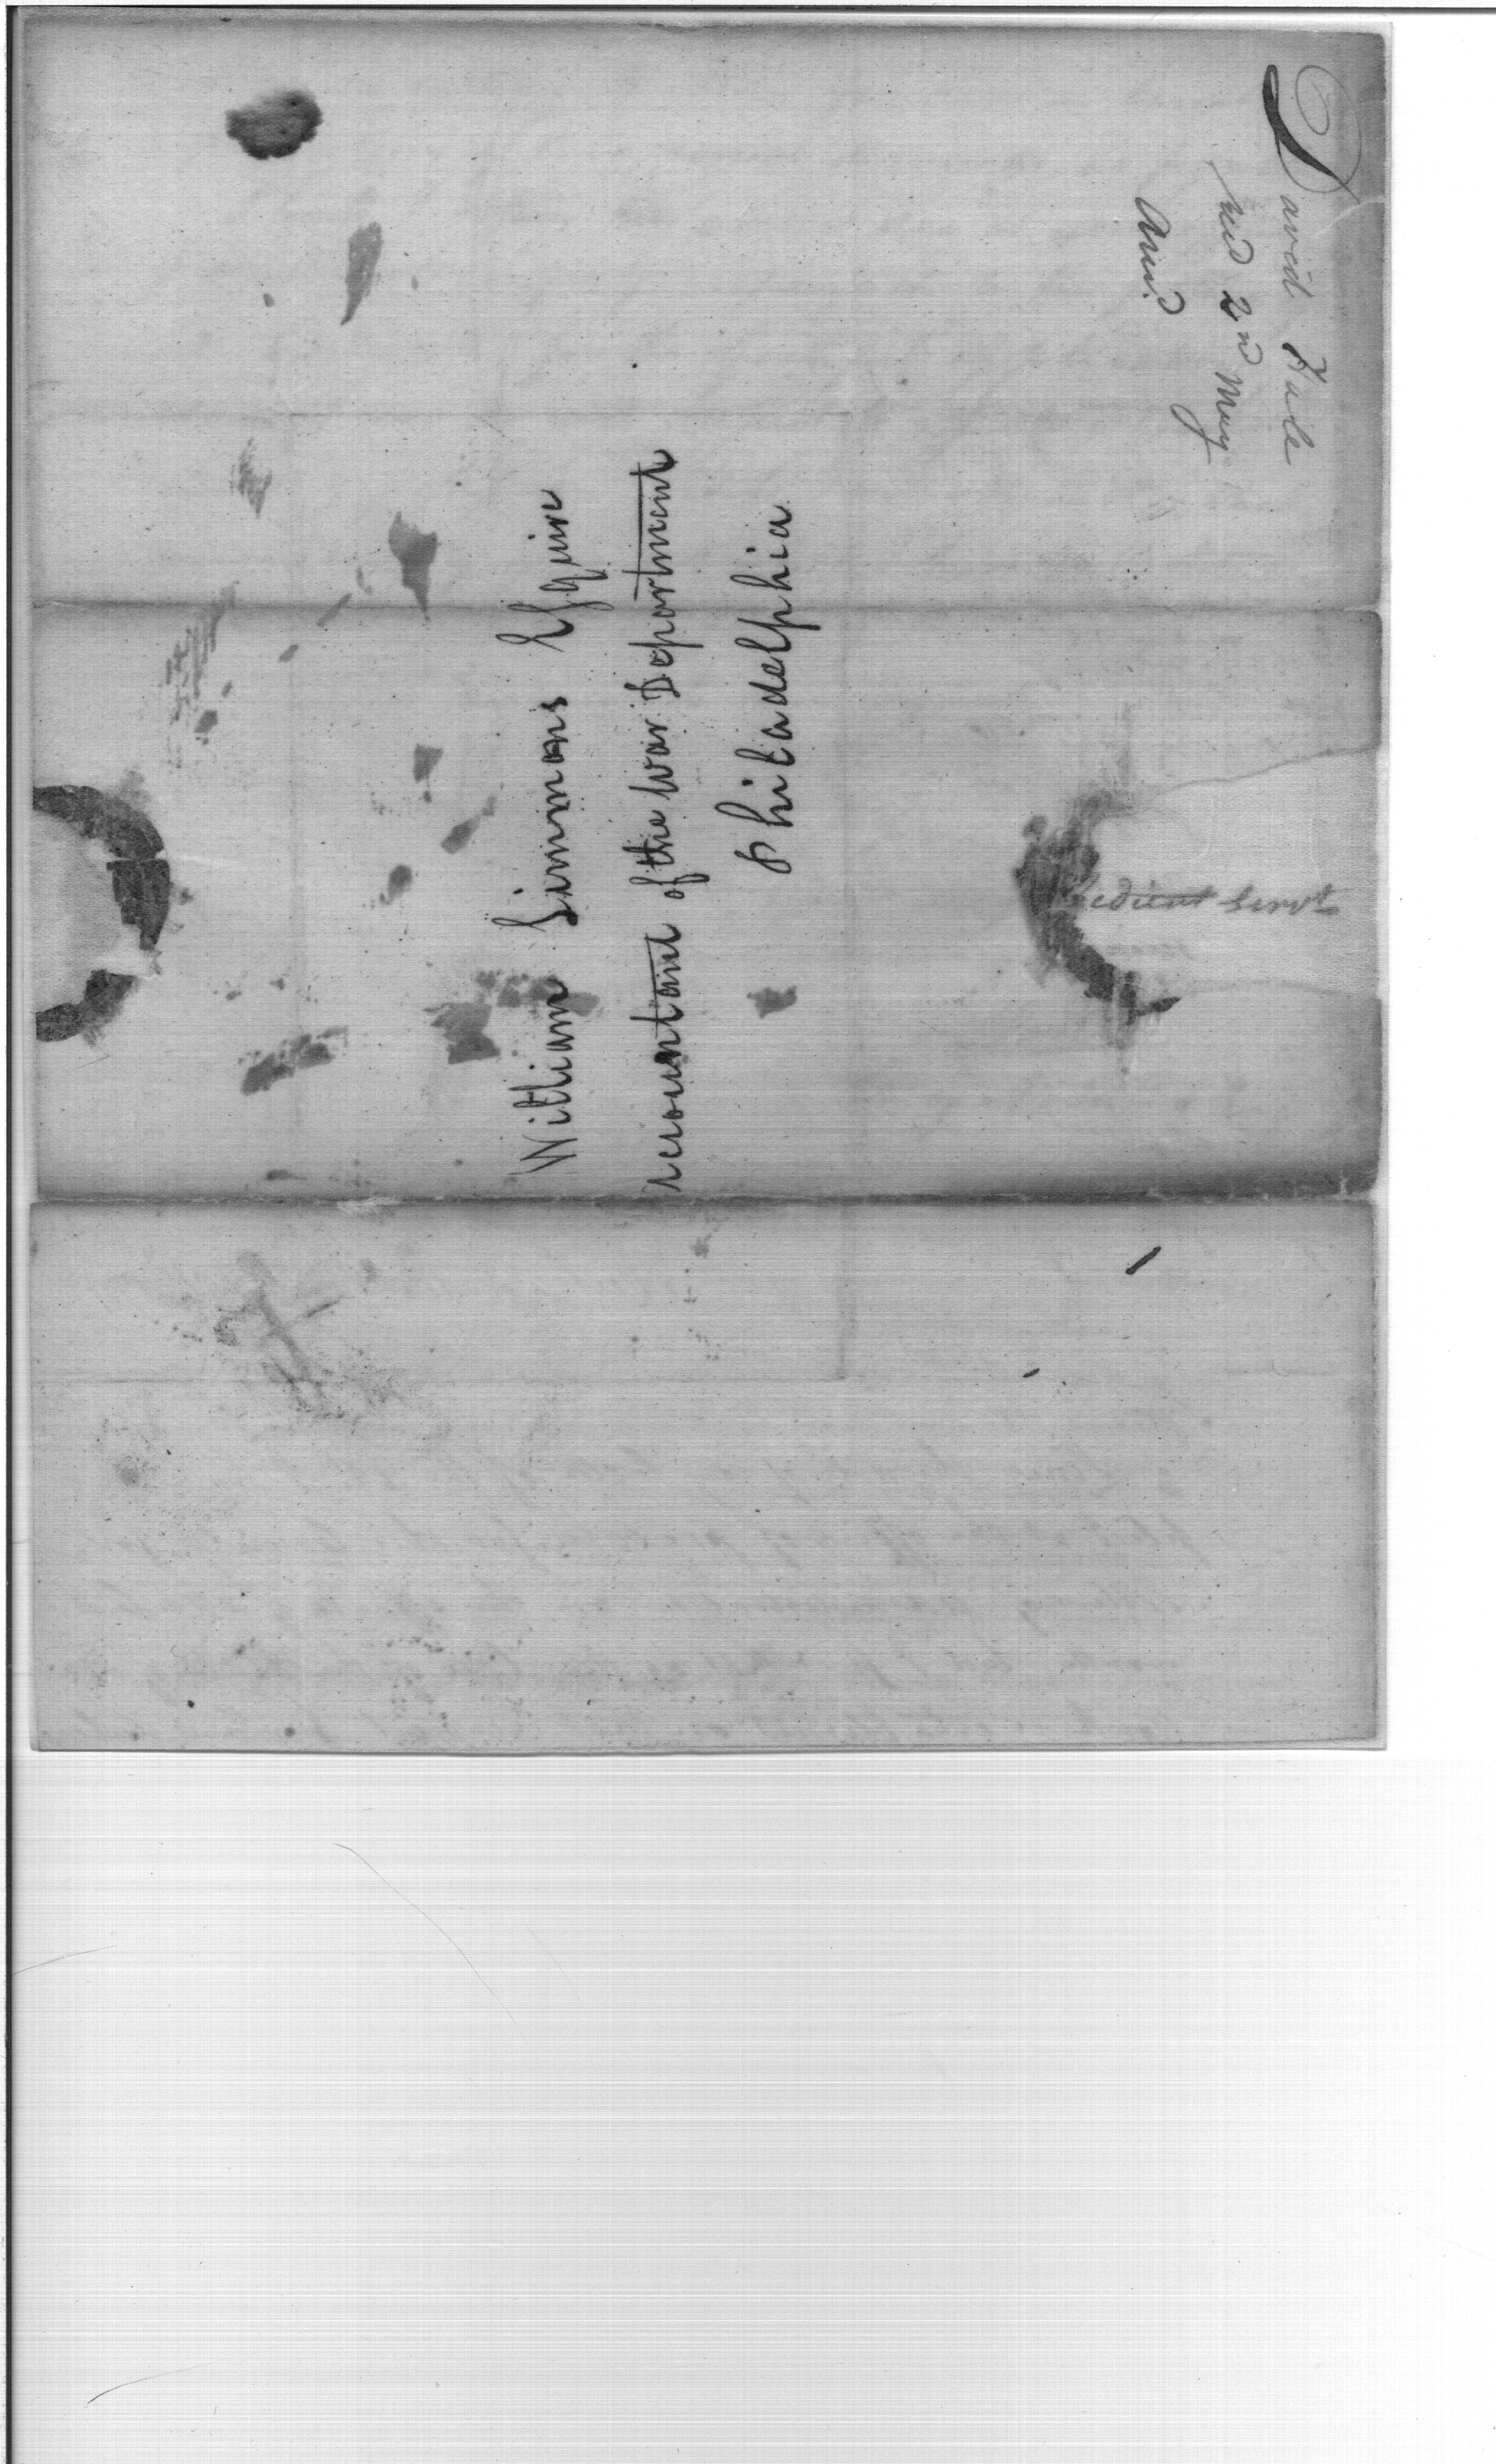 David Hale
recd 2nd May
Ansd
William Simmons Esquire
Accountant of the War Department
Philadelphia
edient Servt